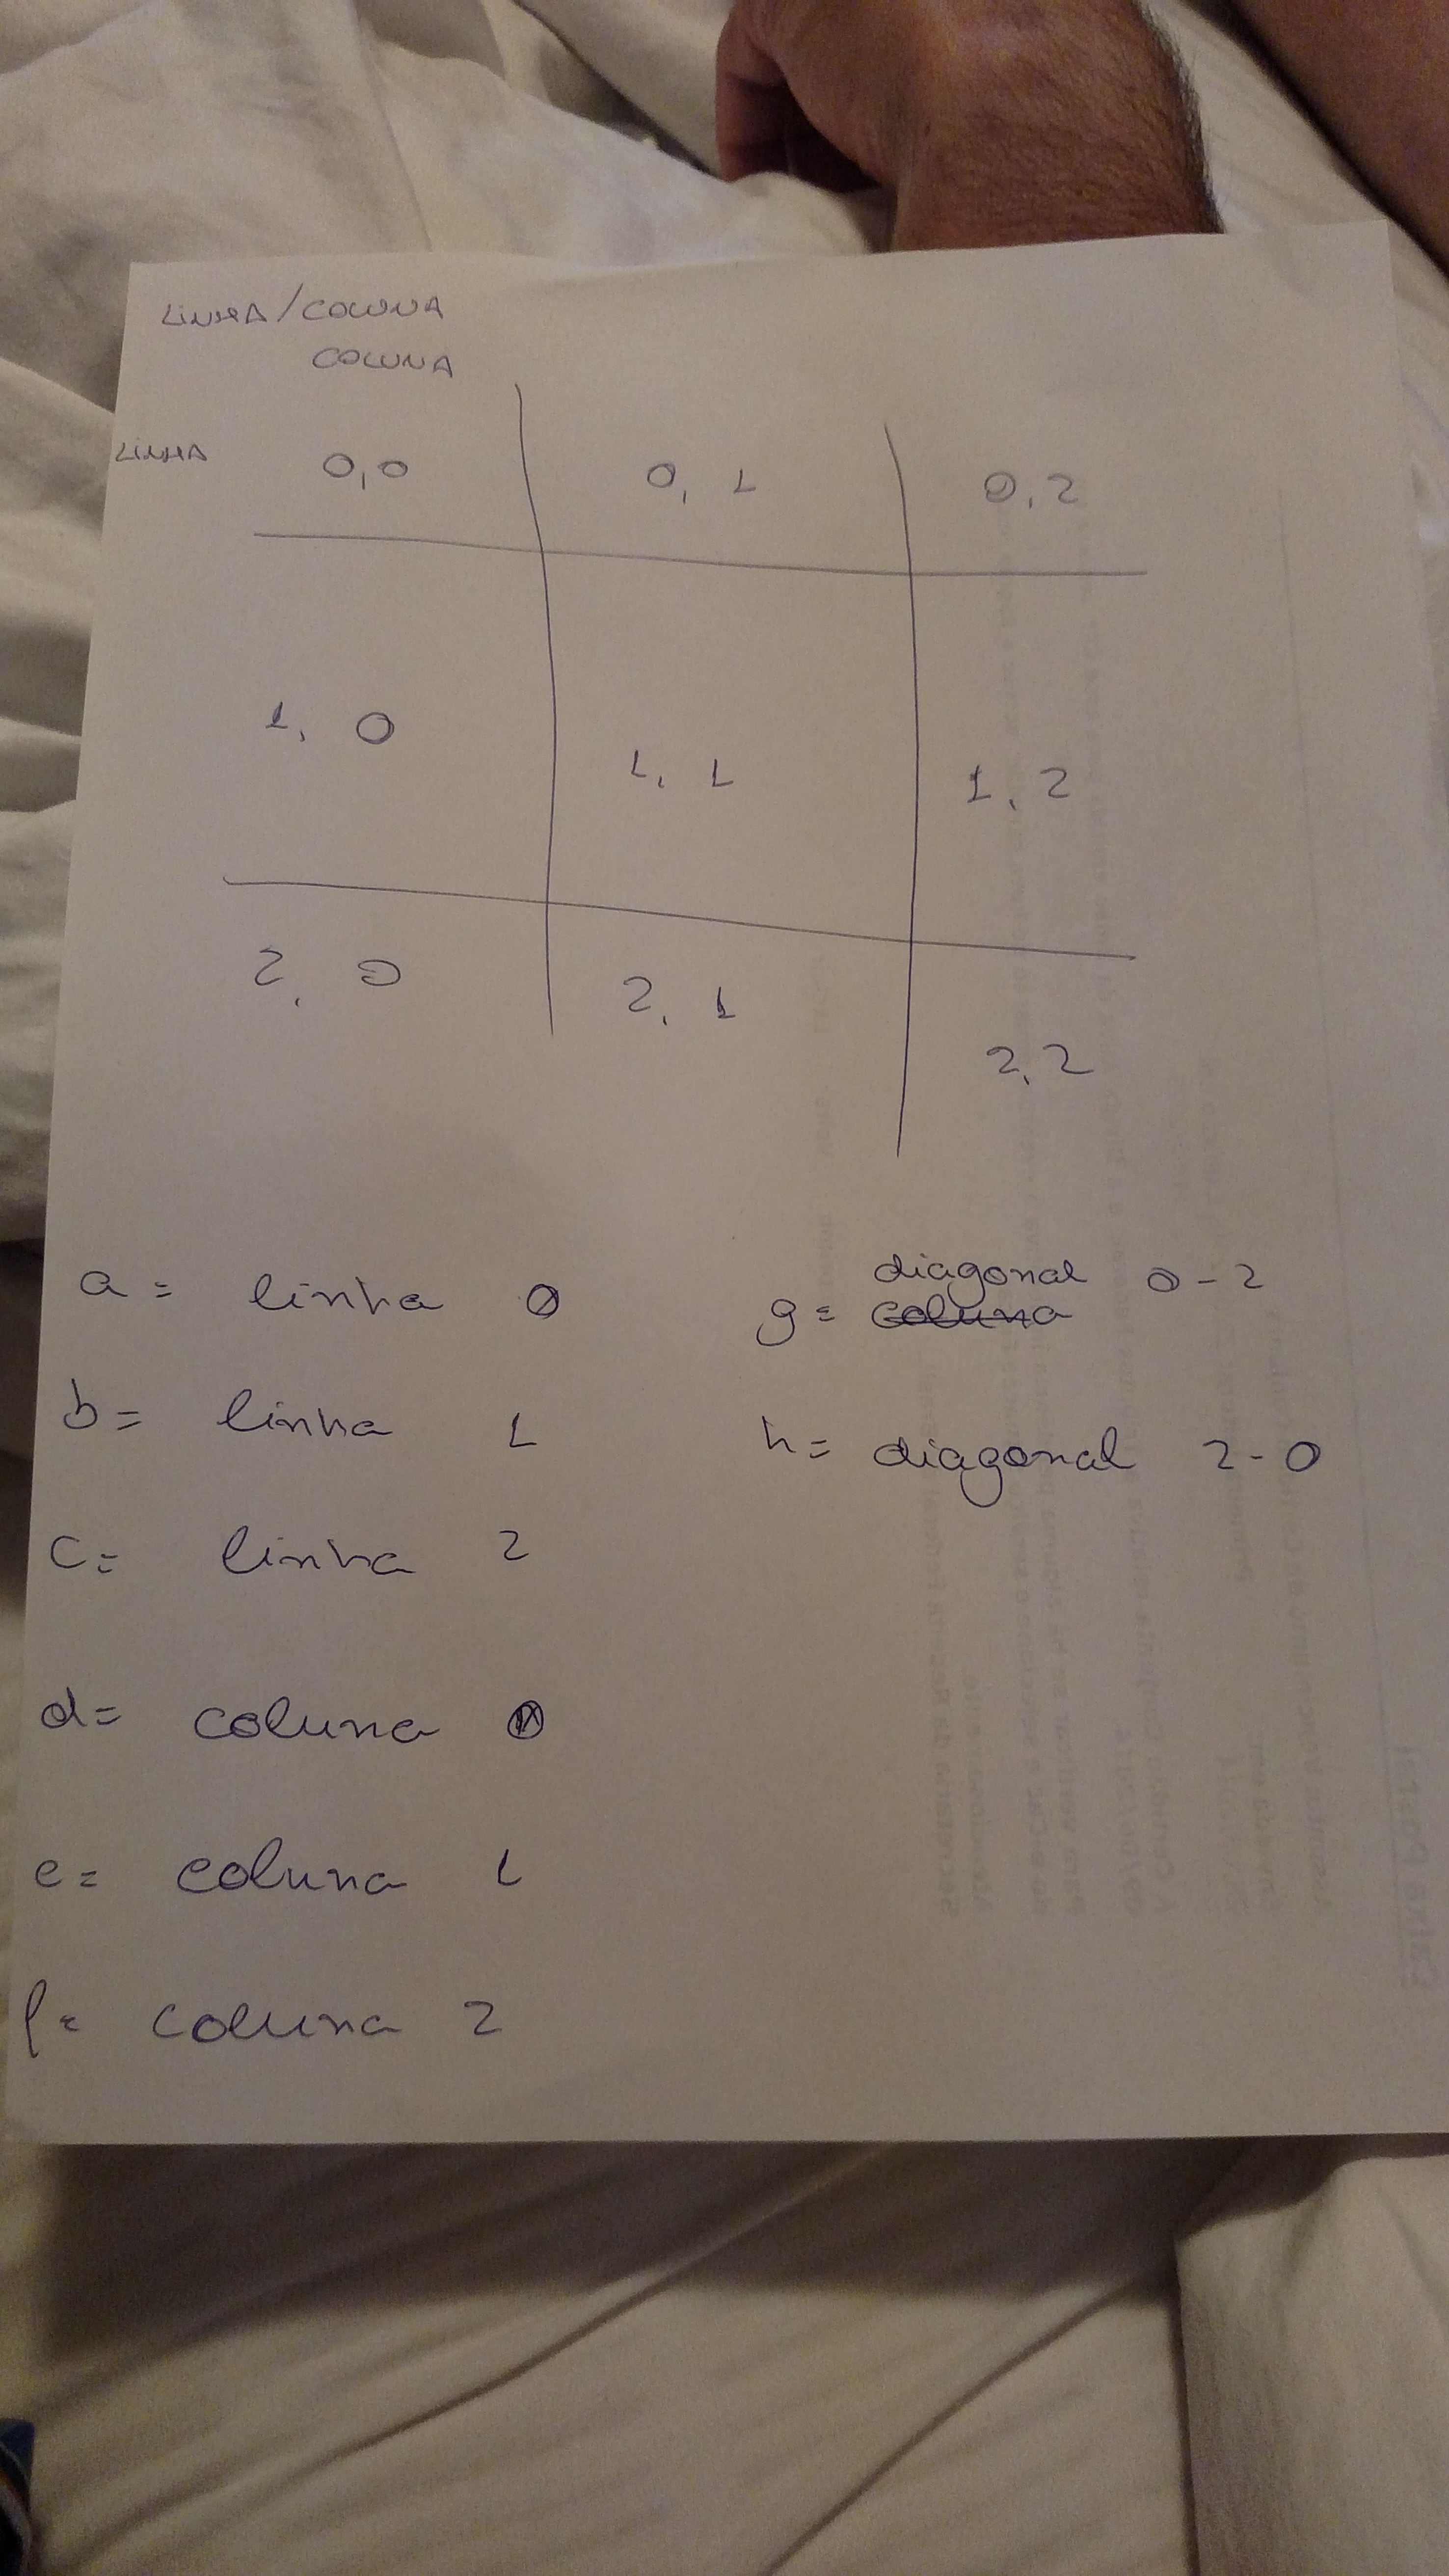 LINHA/COLUNA
COLUNA
LINHA 0,0 0, 1 0,2
1, 0 1, 1 1, 2
2, 0 2, 1 2,2
a = linha 0
b = linha 1
c = linha 2
d = coluna 0
e = coluna 1
f = coluna 2
diagonal 0-2
g = coluna
h = diagonal 2-0